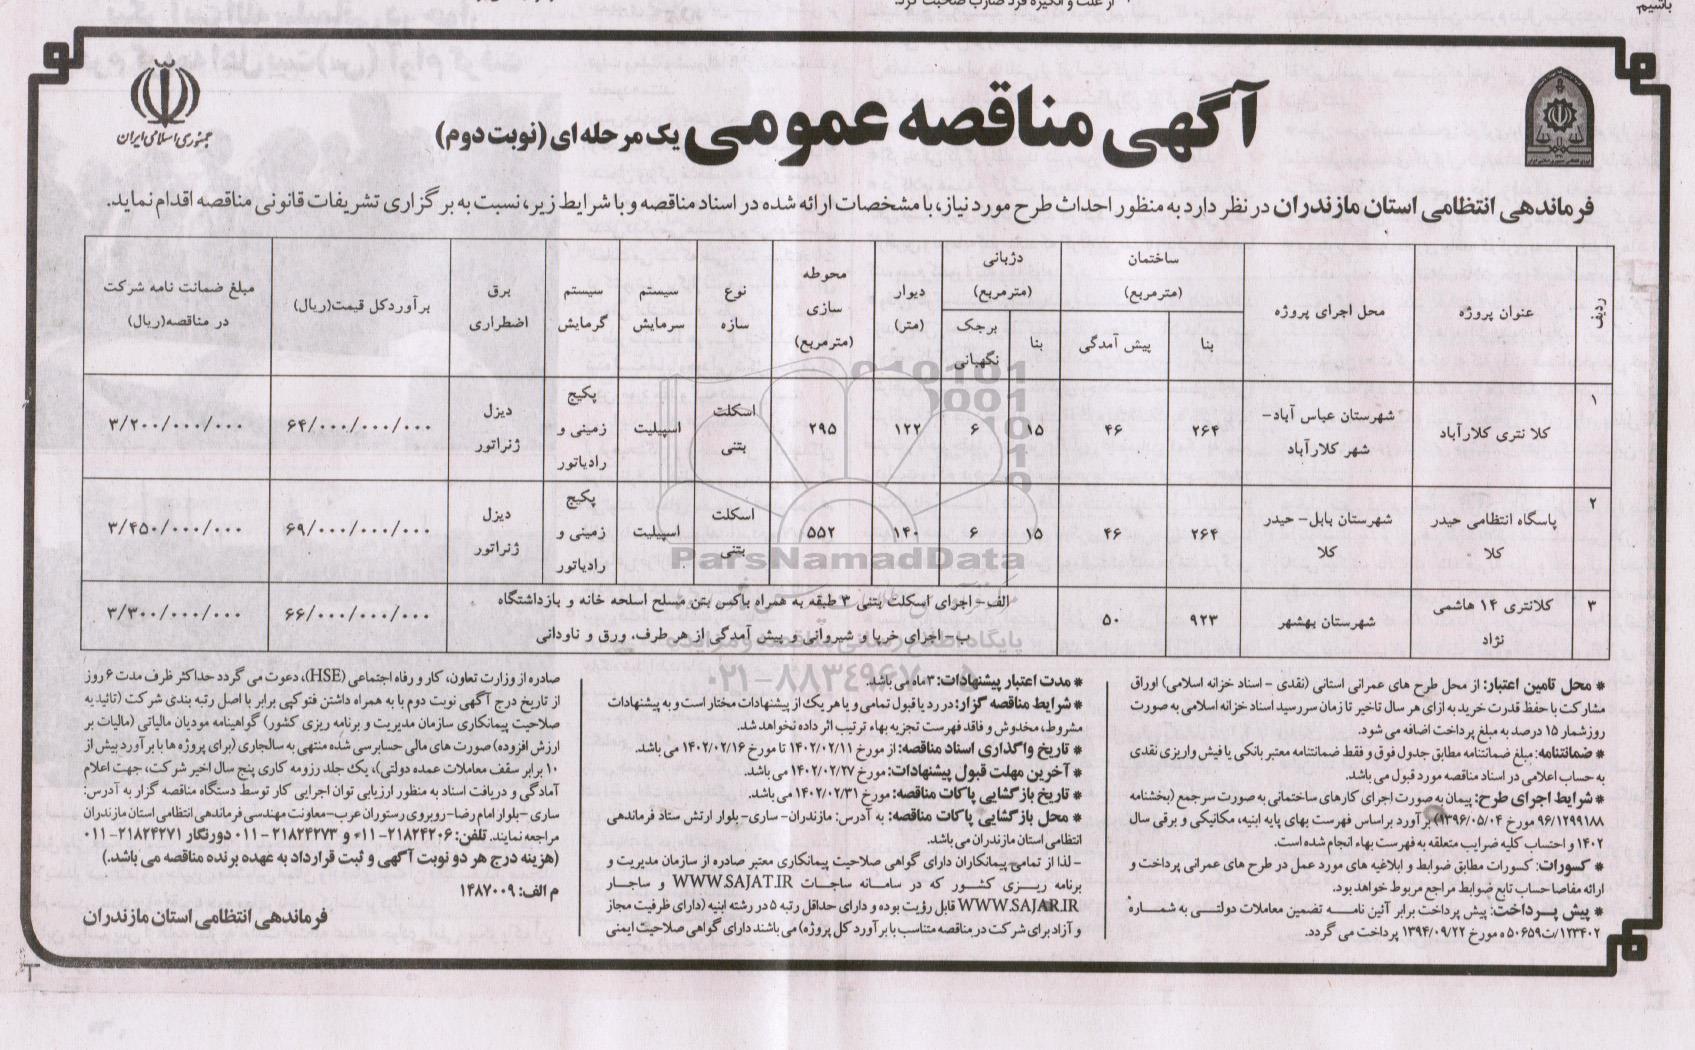 باشیم.
از علت و انگیزه فرد ضارب صحبت کرد.
جمهوری اسلامی ایران
آگهی مناقصه عمومی یک مرحله ای (نوبت دوم)
فرماندهی انتظامی استان مازندران در نظر دارد به منظور احداث طرح مورد نیاز، با مشخصات ارائه شده در اسناد مناقصه و با شرایط زیر، نسبت به برگزاری تشریفات قانونی مناقصه اقدام نماید.
ردیف | عنوان پروژه | محل اجرای پروژه | ساختمان (مترمربع) بنا | پیش آمدگی | دژبانی (مترمربع) بنا | برجک نگهبانی | دیوار (متر) | محوطه سازی (مترمربع) | نوع سازه | سیستم سرمایش | سیستم گرمایش | برق اضطراری | برآورد کل قیمت (ریال) | مبلغ ضمانت نامه شرکت در مناقصه (ریال)
۱ | کلانتری کلارآباد | شهرستان عباس آباد- شهر کلارآباد | ۲۶۴ | ۴۶ | ۱۵ | ۶ | ۱۲۲ | ۲۹۵ | اسکلت بتنی | اسپیلیت | پکیج زمینی و رادیاتور | دیزل ژنراتور | ۶۴/۰۰۰/۰۰۰/۰۰۰ | ۳/۲۰۰/۰۰۰/۰۰۰
۲ | پاسگاه انتظامی حیدر کلا | شهرستان بابل- حیدر کلا | ۲۶۴ | ۴۶ | ۱۵ | ۶ | ۱۴۰ | ۵۵۲ | اسکلت بتنی | اسپیلیت | پکیج زمینی و رادیاتور | دیزل ژنراتور | ۶۹/۰۰۰/۰۰۰/۰۰۰ | ۳/۴۵۰/۰۰۰/۰۰۰
۳ | کلانتری ۱۴ هاشمی نژاد | شهرستان بهشهر | ۹۲۳ | ۵۰ | الف- اجرای اسکلت بتنی ۳ طبقه به همراه باکس بتن مسلح اسلحه خانه و بازداشتگاه | ۶۶/۰۰۰/۰۰۰/۰۰۰ | ۳/۳۰۰/۰۰۰/۰۰۰
ب- اجرای خرپا و شیروانی و پیش آمدگی از هر طرف، ورق و ناودانی
* محل تامین اعتبار: از محل طرح های عمرانی استانی (نقدی - اسناد خزانه اسلامی) اوراق
مشارکت با حفظ قدرت خرید به ازای هر سال تاخیر تا زمان سررسید اسناد خزانه اسلامی به صورت
روزشمار ۱۵ درصد به مبلغ پرداخت اضافه می شود.
* ضمانتنامه: مبلغ ضمانتنامه مطابق جدول فوق و فقط ضمانتنامه معتبر بانکی یا فیش واریزی نقدی
به حساب اعلامی در اسناد مناقصه مورد قبول می باشد.
* شرایط اجرای طرح: پیمان به صورت اجرای کارهای ساختمانی به صورت سرجمع (بخشنامه
۹۶/۱۲۹۹۱۸۸ مورخ ۱۳۹۶/۰۵/۰۴) برآورد براساس فهرست بهای پایه ابنیه، مکانیکی و برقی سال
۱۴۰۲ و احتساب کلیه ضرایب متعلقه به فهرست بهاء انجام شده است.
* کسورات: کسورات مطابق ضوابط و ابلاغیه های مورد عمل در طرح های عمرانی پرداخت و
ارائه مفاصا حساب تابع ضوابط مراجع مربوط خواهد بود.
* پیش پرداخت: پیش پرداخت برابر آئین نامه تضمین معاملات دولتی به شماره
۱۲۳۴۰۲/ت۵۰۶۵۹ه مورخ ۱۳۹۴/۰۹/۲۲ پرداخت می گردد.
* مدت اعتبار پیشنهادات: ۳ ماه می باشد.
* شرایط مناقصه گزار: در رد یا قبول تمامی و یا هر یک از پیشنهادات مختار است و به پیشنهادات
مشروط، مخدوش و فاقد فهرست تجزیه بهاء ترتیب اثر داده نخواهد شد.
* تاریخ واگذاری اسناد مناقصه: از مورخ ۱۴۰۲/۰۲/۱۱ تا مورخ ۱۴۰۲/۰۲/۱۶ می باشد.
* آخرین مهلت قبول پیشنهادات: مورخ ۱۴۰۲/۰۲/۲۷ می باشد.
* تاریخ بازگشایی پاکات مناقصه: مورخ ۱۴۰۲/۰۲/۳۱ می باشد.
* محل بازگشایی پاکات مناقصه: به آدرس: مازندران- ساری- بلوار ارتش ستاد فرماندهی
انتظامی استان مازندران می باشد.
- لذا از تمامی پیمانکاران دارای گواهی صلاحیت پیمانکاری معتبر صادره از سازمان مدیریت و
برنامه ریزی کشور که در سامانه ساجات WWW.SAJAT.IR و ساجار
WWW.SAJAR.IR قابل رؤیت بوده و دارای حداقل رتبه ۵ در رشته ابنیه (دارای ظرفیت مجاز
و آزاد برای شرکت در مناقصه متناسب با برآورد کل پروژه) می باشند دارای گواهی صلاحیت ایمنی
صادره از وزارت تعاون، کار و رفاه اجتماعی (HSE)، دعوت می گردد حداکثر ظرف مدت ۶ روز
از تاریخ درج آگهی نوبت دوم با به همراه داشتن فتوکپی برابر با اصل رتبه بندی شرکت (تائید به
صلاحیت پیمانکاری سازمان مدیریت و برنامه ریزی کشور) گواهینامه مودیان مالیاتی (مالیات بر
ارزش افزوده) صورت های مالی حسابرسی شده منتهی به سالجاری (برای پروژه ها با برآورد بیش از
۱۰ برابر سقف معاملات عمده دولتی)، یک جلد رزومه کاری پنج سال اخیر شرکت، جهت اعلام
آمادگی و دریافت اسناد به منظور ارزیابی توان اجرایی کار توسط دستگاه مناقصه گزار به آدرس:
ساری - بلوار امام رضا - روبروی رستوران عرب - معاونت مهندسی فرماندهی انتظامی استان مازندران
مراجعه نمایند. تلفن: ۲۱۸۲۴۲۰۶-۰۱۱ و ۲۱۸۲۴۲۷۳-۰۱۱ دورنگار ۲۱۸۲۴۲۷۱-۰۱۱
(هزینه درج هر دو نوبت آگهی و ثبت قرارداد به عهده برنده مناقصه می باشد.)
م الف: ۱۴۸۷۰۰۹
فرماندهی انتظامی استان مازندران
ParsNamadData
پایگاه اطلاع رسانی مناقصه و مزایده
۰۲۱-۸۸۳۴۹۶۷۰-۵